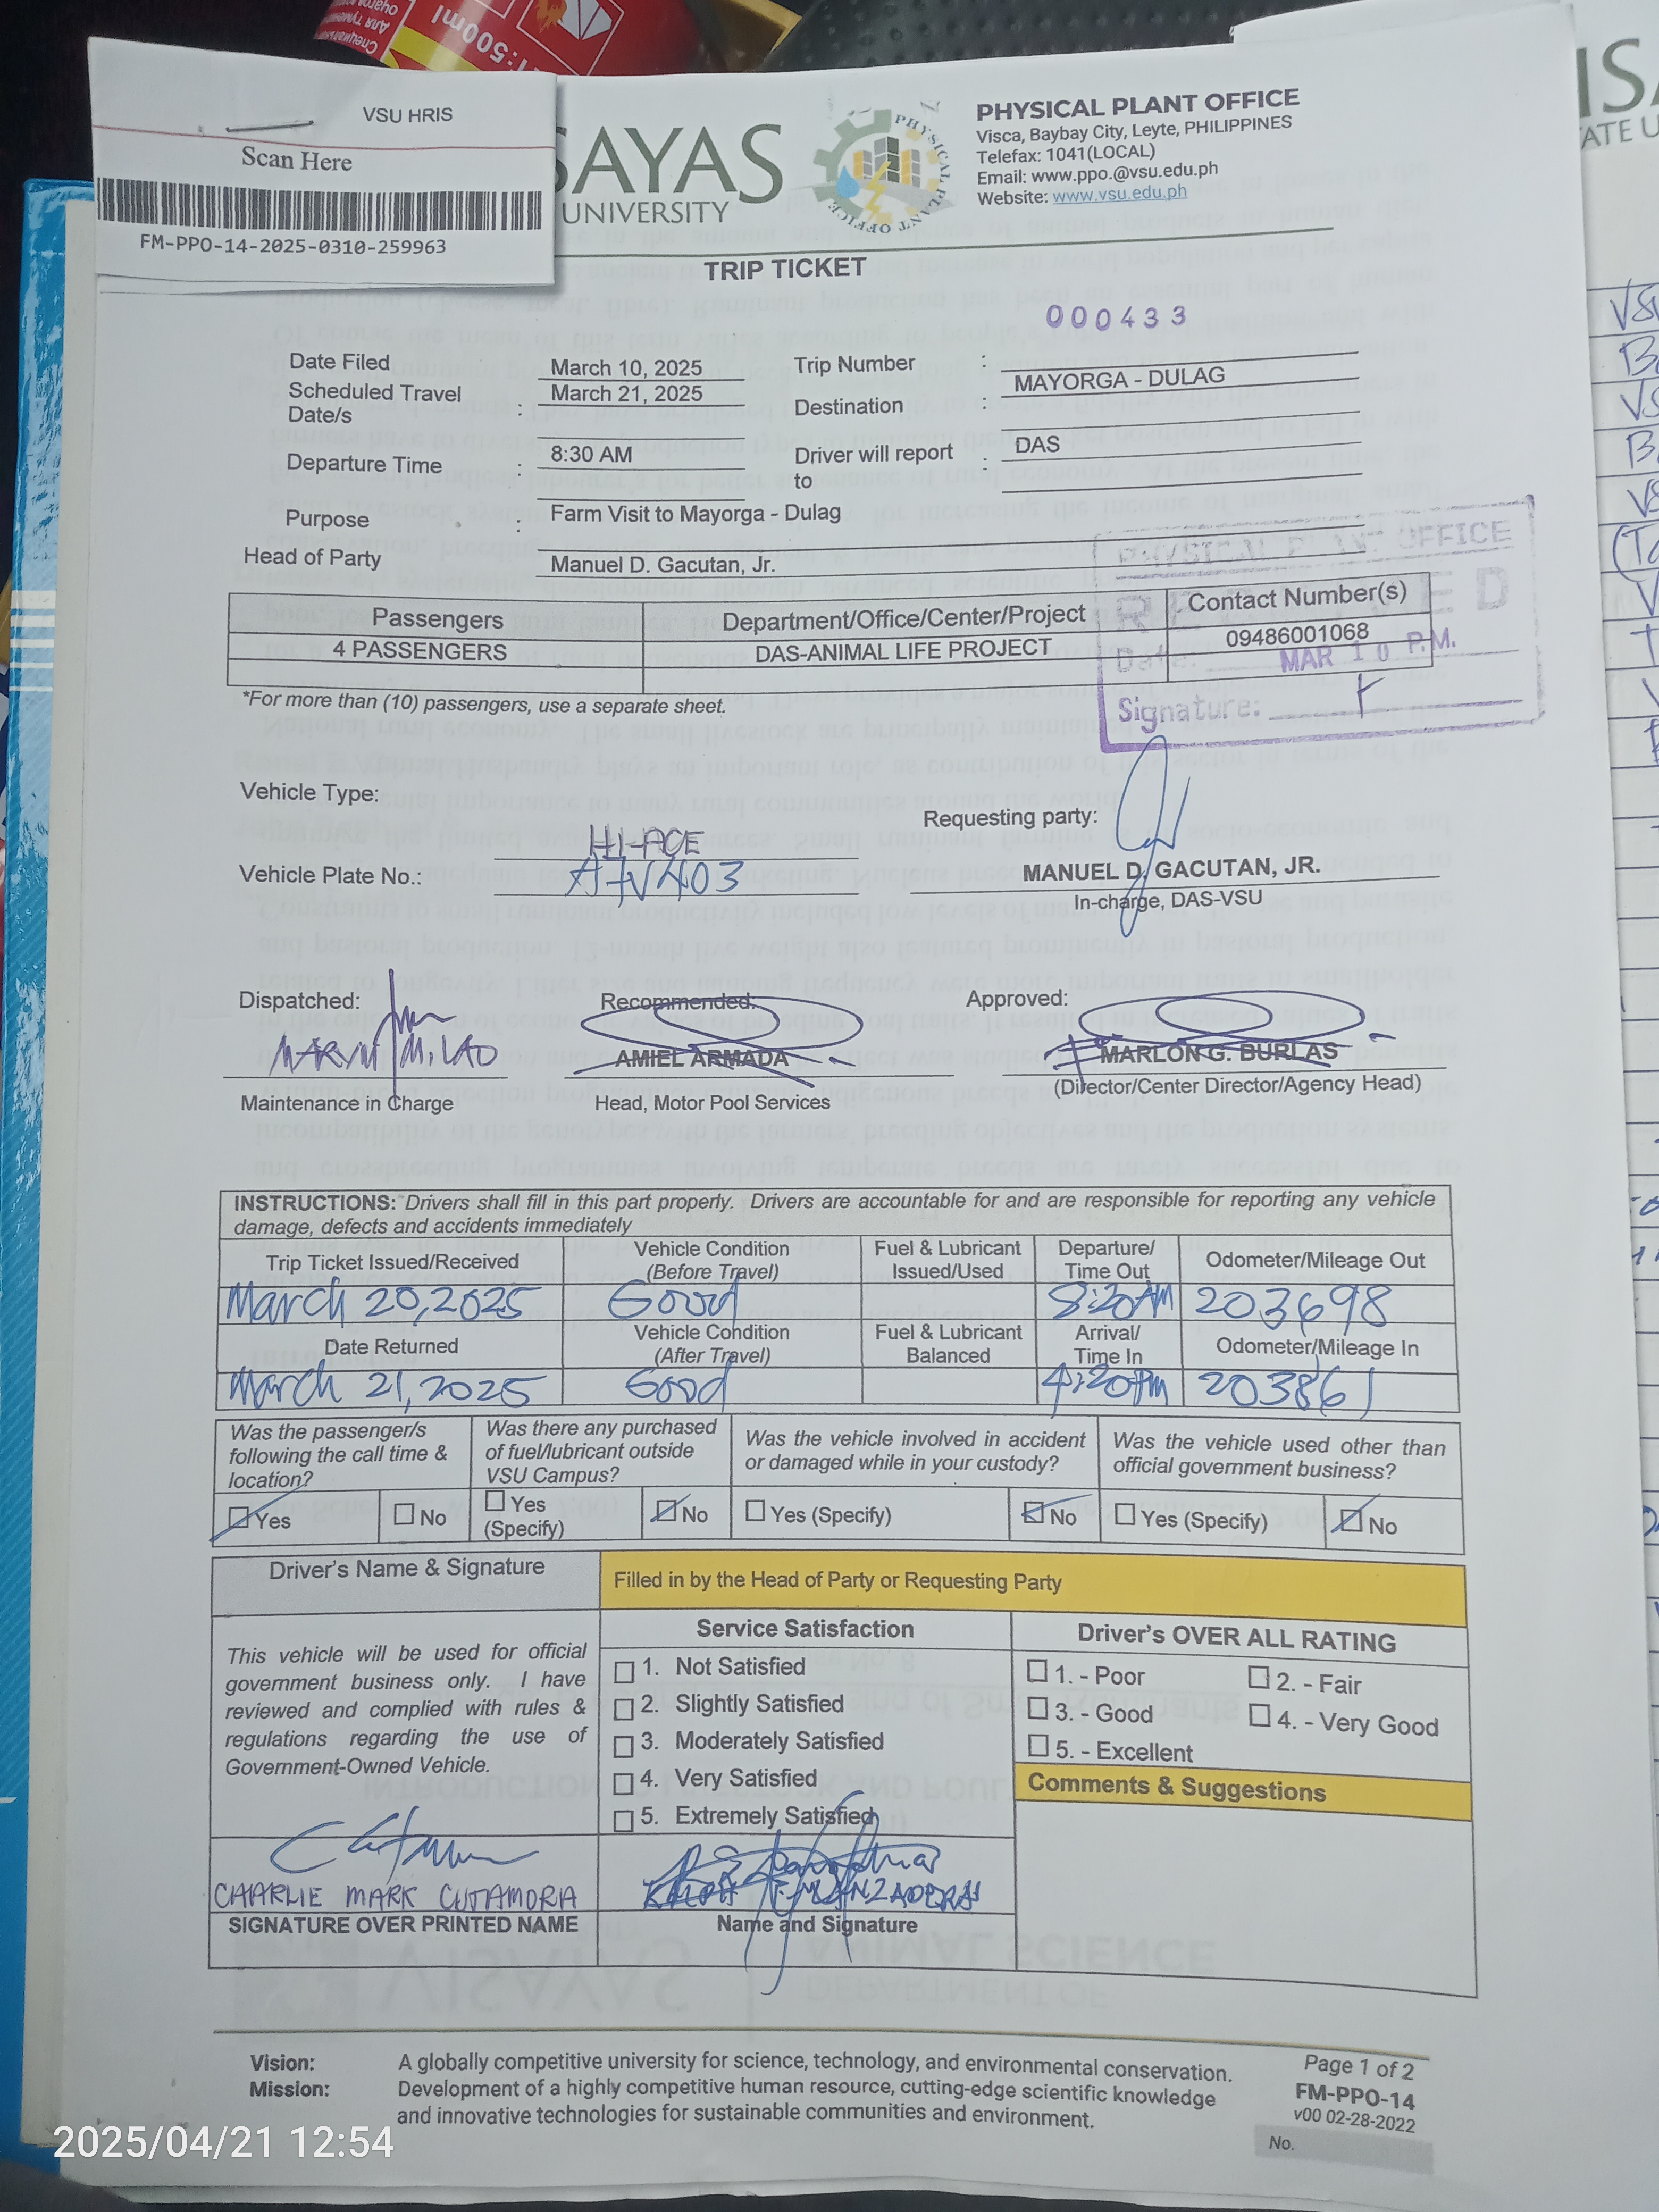 VSU HRIS
Scan Here
FM-PPO-14-2025-0310-259963
1500ml
SAYAS
UNIVERSITY
PHYSICAL PLANT OFFICE
PHYSICAL PLANT OFFICE
Visca, Baybay City, Leyte, PHILIPPINES
Telefax: 1041(LOCAL)
Email: www.ppo.@vsu.edu.ph
Website: www.vsu.edu.ph
TRIP TICKET
000433
Date Filed March 10, 2025 Trip Number :
Scheduled Travel Date/s : March 21, 2025 Destination : MAYORGA - DULAG
Departure Time : 8:30 AM Driver will report to : DAS
Purpose : Farm Visit to Mayorga - Dulag
Head of Party Manuel D. Gacutan, Jr.
PHYSICAL PLANT OFFICE
RECEIVED
Date: MAR 10 P.M.
Signature:
Passengers Department/Office/Center/Project Contact Number(s)
4 PASSENGERS DAS-ANIMAL LIFE PROJECT 09486001068
*For more than (10) passengers, use a separate sheet.
Vehicle Type: HI-ACE
Requesting party:
Vehicle Plate No.:
MANUEL D. GACUTAN, JR.
In-charge, DAS-VSU
Dispatched: Recommended: Approved:
MARVIN M. LAO AMIEL ARMADA MARLON G. BURLAS
Maintenance in Charge Head, Motor Pool Services (Director/Center Director/Agency Head)
INSTRUCTIONS: Drivers shall fill in this part properly. Drivers are accountable for and are responsible for reporting any vehicle
damage, defects and accidents immediately
Trip Ticket Issued/Received Vehicle Condition (Before Travel) Fuel & Lubricant Issued/Used Departure/ Time Out Odometer/Mileage Out
March 20, 2025 Good 8:20AM 203698
Date Returned Vehicle Condition (After Travel) Fuel & Lubricant Balanced Arrival/ Time In Odometer/Mileage In
March 21, 2025 Good 4:20PM 203861
Was the passenger/s following the call time & location?
Was there any purchased of fuel/lubricant outside VSU Campus?
Was the vehicle involved in accident or damaged while in your custody?
Was the vehicle used other than official government business?
Yes No Yes (Specify) No Yes (Specify) No Yes (Specify) No
Driver's Name & Signature
Filled in by the Head of Party or Requesting Party
This vehicle will be used for official
government business only. I have
reviewed and complied with rules &
regulations regarding the use of
Government-Owned Vehicle.
Service Satisfaction
1. Not Satisfied
2. Slightly Satisfied
3. Moderately Satisfied
4. Very Satisfied
5. Extremely Satisfied
Driver's OVER ALL RATING
1. - Poor 2. - Fair
3. - Good 4. - Very Good
5. - Excellent
Comments & Suggestions
CHARLIE MARK CUTAMORA
SIGNATURE OVER PRINTED NAME
Name and Signature
Vision: A globally competitive university for science, technology, and environmental conservation.
Mission: Development of a highly competitive human resource, cutting-edge scientific knowledge
and innovative technologies for sustainable communities and environment.
Page 1 of 2
FM-PPO-14
v00 02-28-2022
No.
2025/04/21 12:54